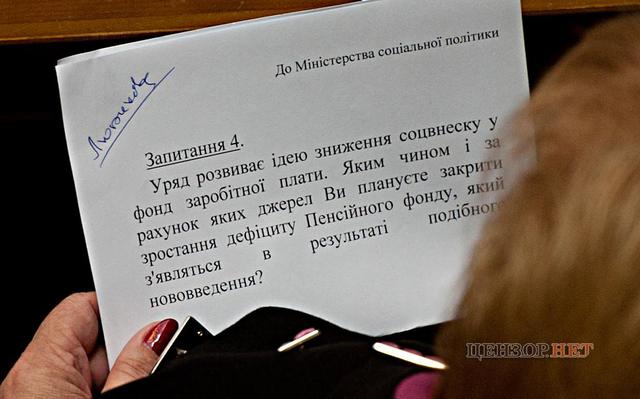 До Міністерства соціальної політики
Запитання 4.
Уряд розвиває ідею зниження соцвнеску у
фонд заробітної плати. Яким чином і за
рахунок яких джерел Ви плануєте закрити
зростання дефіциту Пенсійного фонду, який
з'являться в результаті подібного
нововведення?
ЦЕНЗОР.НЕТ